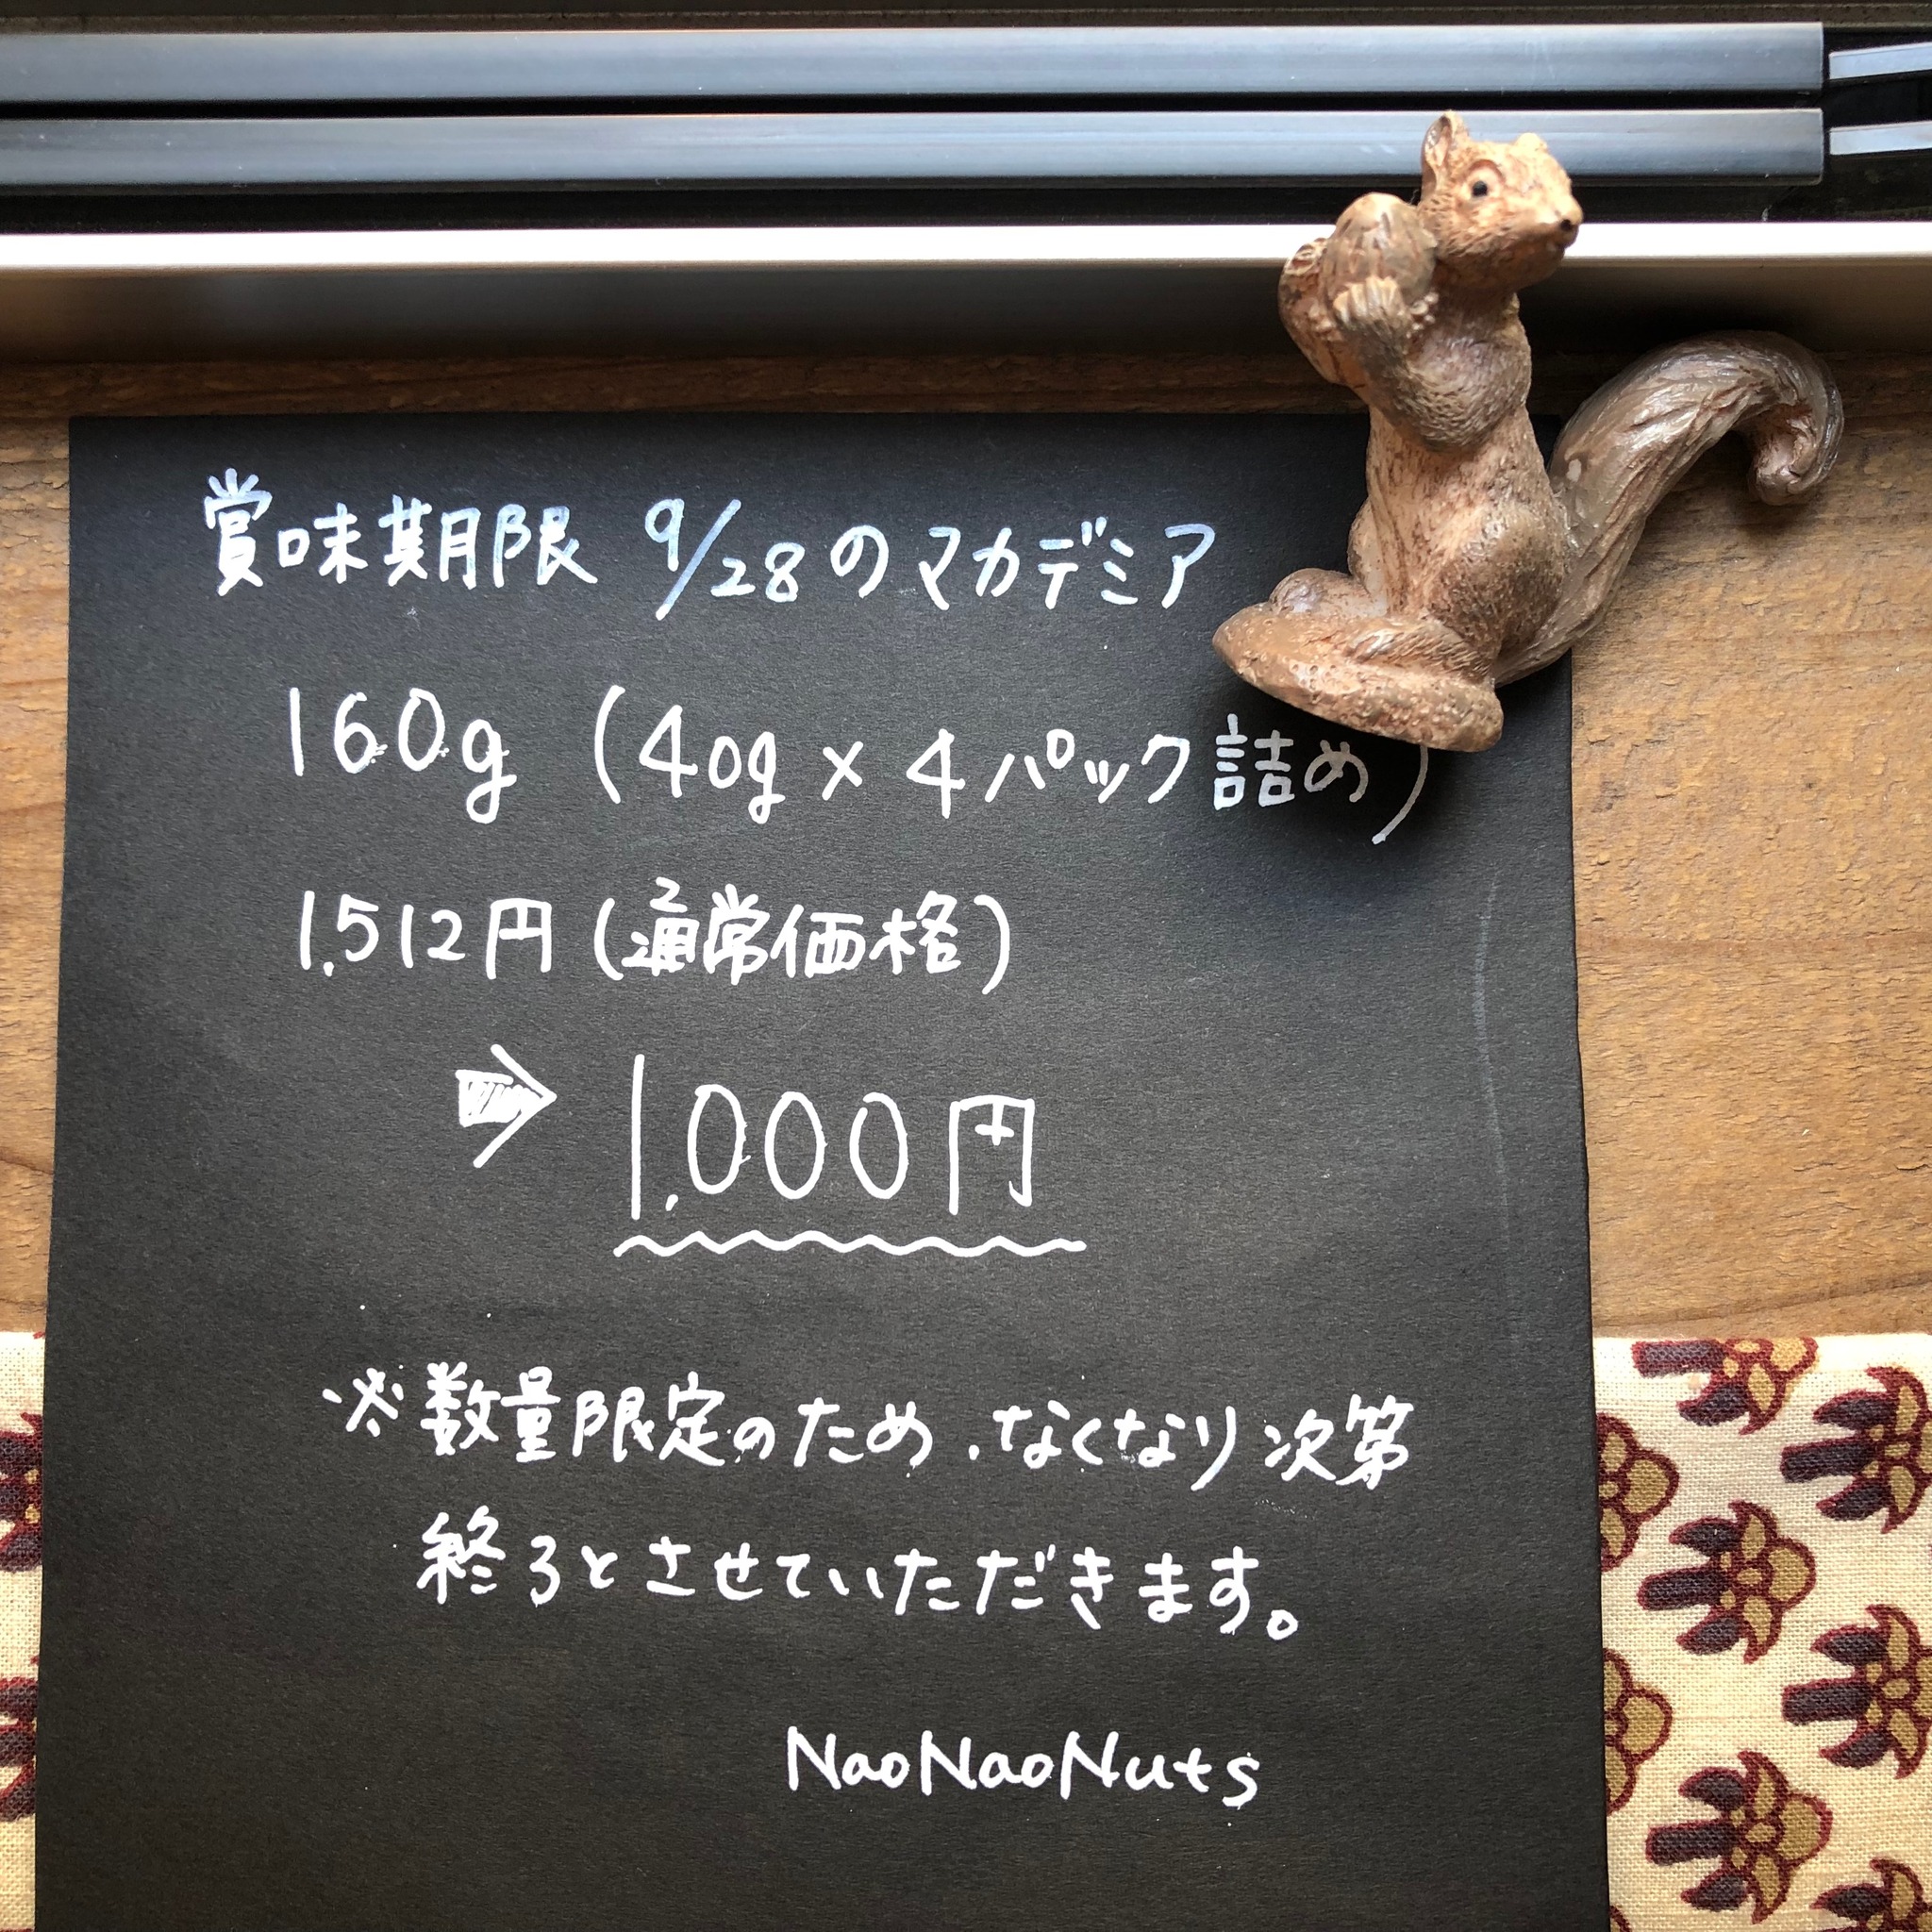 賞味期限 9/28のマカデミア
160g (40g×4パック詰め)
1,512円(通常価格)
⇒ 1,000円
※数量限定のため、なくなり次第
終了とさせていただきます。
NaoNaoNuts